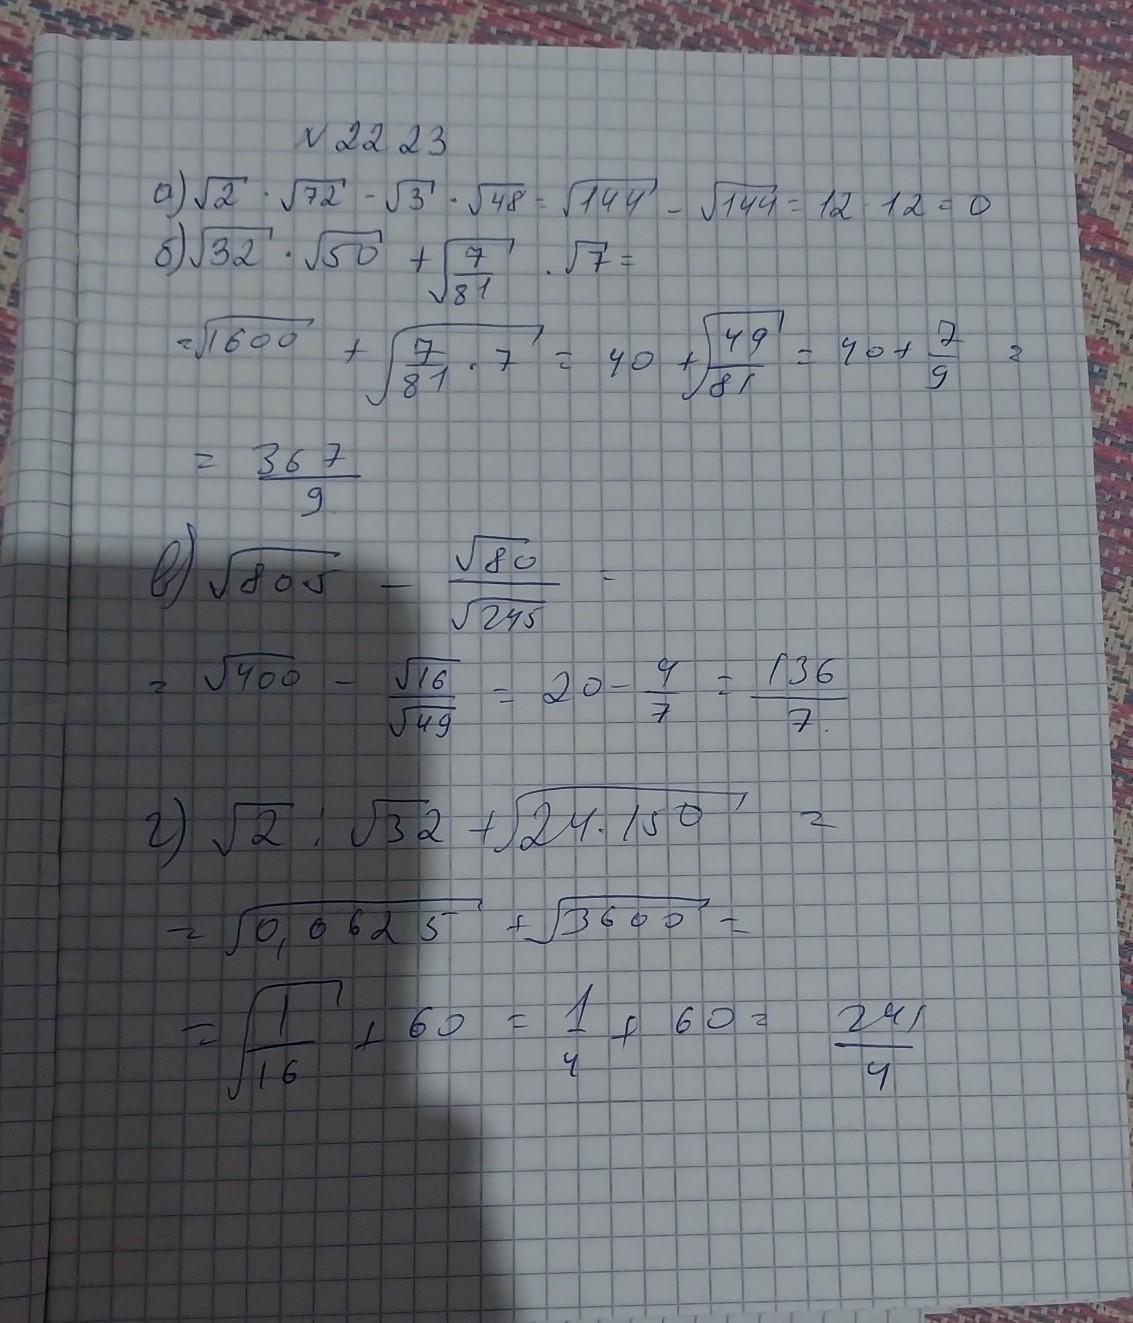 № 22 23
а) √2 · √72 - √3 · √48 = √144 - √144 = 12 12 = 0
б) √32 · √50 + √(7/81) · √7 =
= √1600 + √(7/81 · 7) = 40 + √(49/81) = 40 + 7/9 =
= 367/9
в) √805 - √80/√245 =
= √400 - √16/√49 = 20 - 4/7 = 136/7
г) √2 : √32 + √(24 · 150) =
= √0,0625 + √3600 =
= √(1/16) + 60 = 1/4 + 60 = 241/4